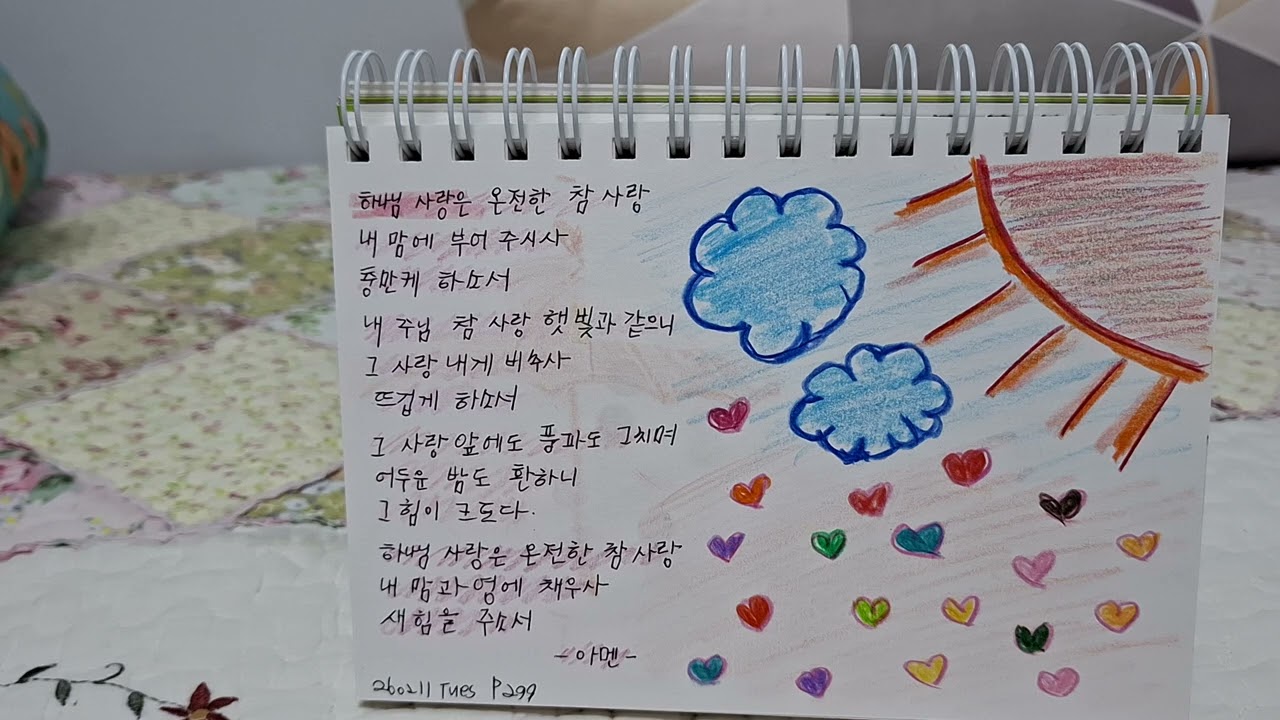 하나님 사랑은 온전한 참 사랑
내 맘에 부어 주시사
충만케 하소서
내 주님 참 사랑 햇빛과 같으니
그 사랑 내게 비추사
뜨겁게 하소서
그 사랑 앞에도 풍파도 그치며
어두운 밤도 환하니
그 힘이 크도다.
하나님 사랑은 온전한 참 사랑
내 맘과 영에 채우사
새 힘을 주소서
-아멘-
260211 Tues P299